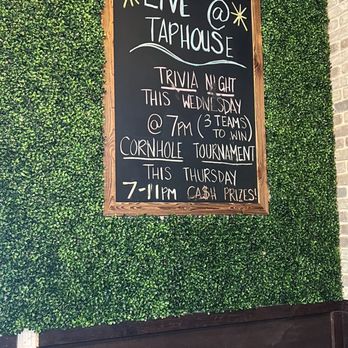 LIVE @
TAPHOUSE
TRIVIA N'GHT
THIS WEDNESDAY
@ 7PM (3 TEAMS
TO WIN)
CORNHOLE TOURNAMENT
THIS THURSDAY
7-11PM CA$H PRIZES!